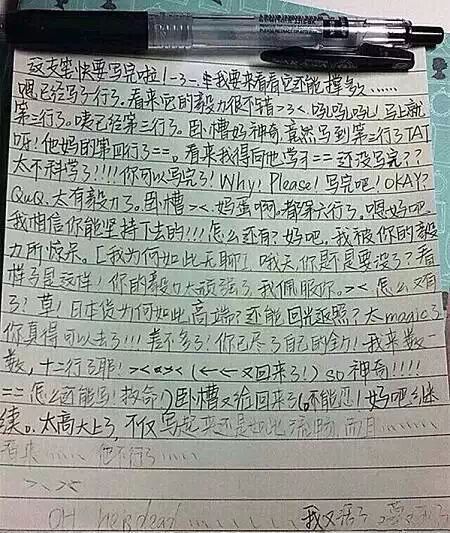 PLEASE REMOVE TAG
这支笔快要写完啦!→3→ 我要来看看它还能撑多……
嗯已经写了一行了。看来它的毅力很不错><。吼吼吼吼!马上就
第二行了。咦已经第二行了。卧槽好神奇竟然写到第三行了TAT
呀!他妈的第四行了==。看来我得向他学习==还没写完??
太不科学了!!!!你可以写完了!Why!Please!写完吧!OKAY?
QuQ。太有毅力了。卧槽><。妈蛋啊。都第六行了。嗯好吧。
我相信你能坚持下去的!!!怎么还有?好吧。我被你的毅
力所惊呆。[我为何如此无聊]哦天你是不是要没了?看
样子是这样!你的毅力太顽强了。我佩服你。><怎么又有
了?草!日本货为何如此高端?还能回光返照?太magic了
你真得可以去了!!!差不多了!你已尽了自己的全力!我来数
数,十二行了耶!><<<><(←←又回来了!)so神奇!!!!
==怎么还能写!救命!)卧槽又给回来了(。不能忍!好吧继
续。。太高大上了,不仅写起来还是如此流畅 而且……
看来…… 他不行了……
>、><
OH he is dead…… 我又活了